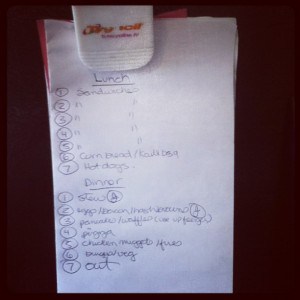 Lunch
1 Sandwiches
2 " "
3 " "
4 " "
5 " "
6 Corn bread /
7 Hot dogs.
Dinner
1 Stew A
2 eggs/bacon/hashbrowns A
3 pancakes/waffles
4 pizza
5 chicken nuggets/fries
6 /veg
7 out